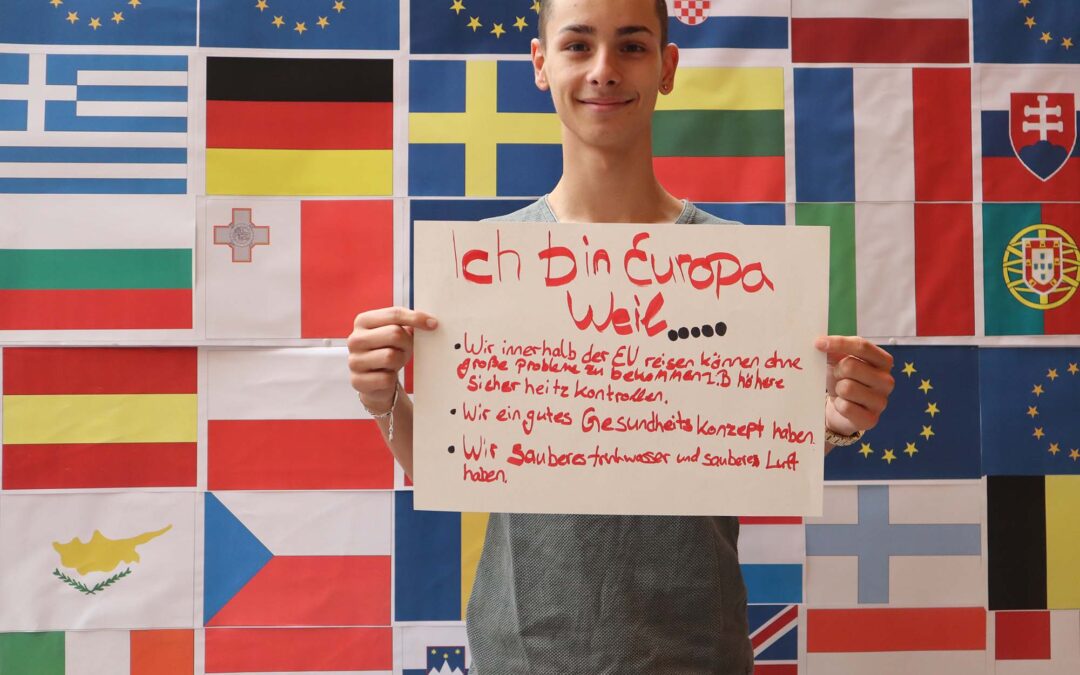 Ich bin Europa
Weil.....
• Wir innerhalb der EU reisen können ohne
große probleme zu bekommen z.B höhere
Sicherheitz kontrollen.
• Wir ein gutes Gesundheits konzept haben.
• Wir sauberes trinkwasser und sauberes Luft
haben.